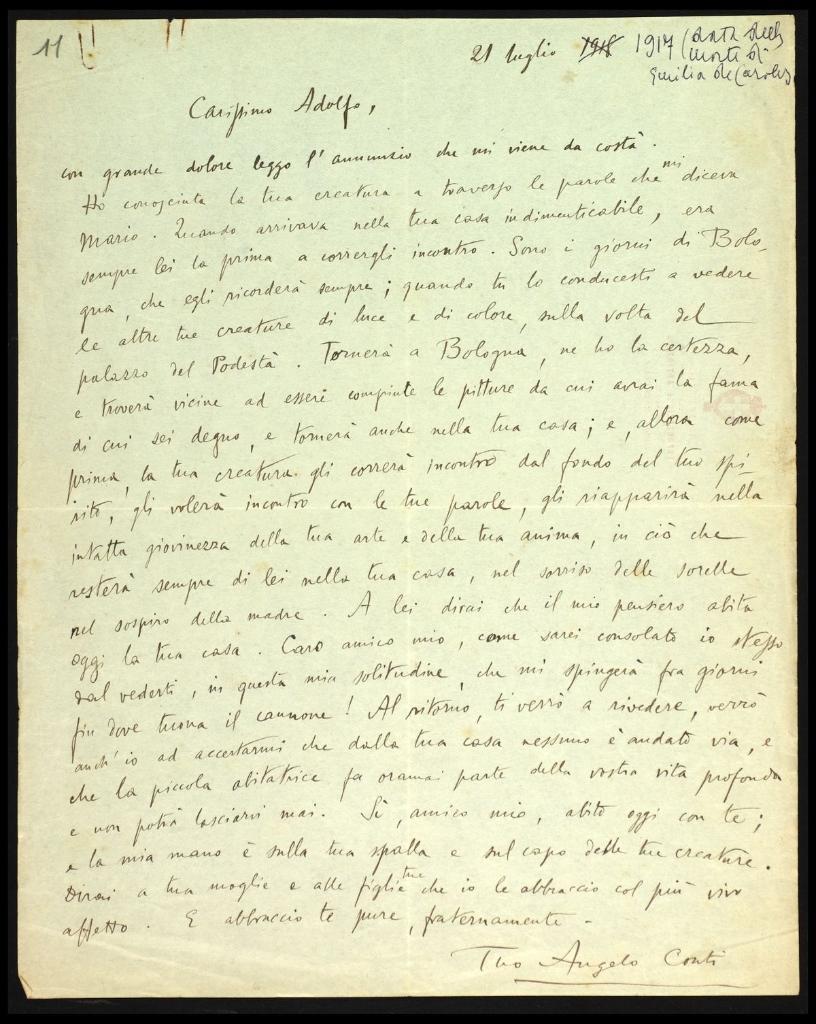 11
21 luglio 1918 1917 (data della
morte di
Emilia de Carolis)
Carissimo Adolfo,
con grande dolore leggo l'annunzio che mi viene da costà.
Ho conosciuta la tua creatura a traverso le parole che mi diceva
Mario. Quando arrivava nella tua casa indimenticabile, era
sempre lei la prima a corrergli incontro. Sono i giorni di Bolo-
gna, che egli ricorderà sempre; quando tu lo conducesti a vedere
le altre tue creature di luce e di colore, sulla volta del
palazzo del Podestà. Tornerà a Bologna, ne ho la certezza,
e troverà vicine ad essere compiute le pitture da cui avrai la fama
di cui sei degno, e tornerà anche nella tua casa; e, allora come
prima, la tua creatura gli correrà incontro dal fondo del tuo spi
rito, gli volerà incontro con le tue parole, gli riapparirà nella
intatta giovinezza della tua arte e della tua anima, in ciò che
resterà sempre di lei nella tua casa, nel sorriso delle sorelle
nel sospiro della madre. A lei dirai che il mio pensiero abita
oggi la tua casa. Caro amico mio, come sarei consolato io stesso
dal vederti, in questa mia solitudine, che mi spingerà fra giorni
fin dove tuona il cannone! Al ritorno, ti verrò a rivedere, verrò
anch'io ad accertarmi che dalla tua casa nessuno è andato via, e
che la piccola abitatrice fa oramai parte della vostra vita profonda
e non potrà lasciarvi mai. Sì, amico mio, abito oggi con te;
e la mia mano è sulla tua spalla e sul capo delle tue creature.
Dirai a tua moglie e alle figlie tue che io le abbraccio col più vivo
affetto. E abbraccio te pure, fraternamente -
Tuo Angelo Conti